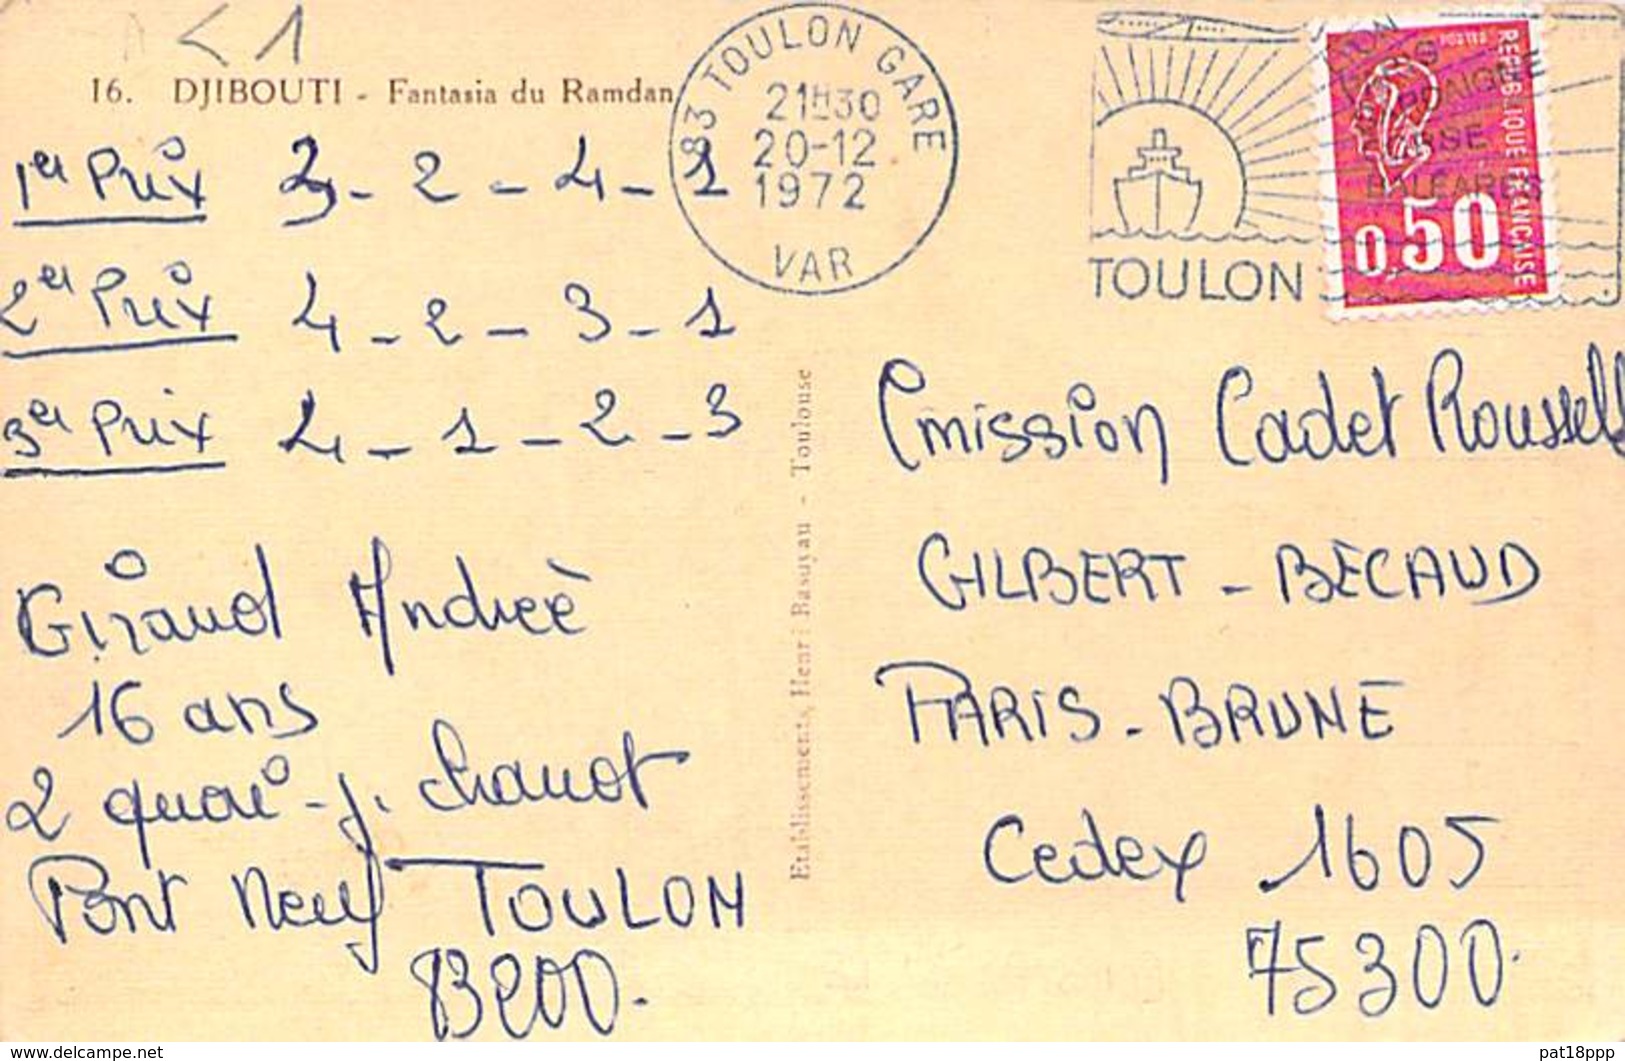 < 1
16. DJIBOUTI - Fantasia du Ramdan
83 TOULON GARE
21H30
20-12
1972
VAR
TOULON
BALÉARES
REPUBLIQUE FRANÇAISE
0,50
1er Prix 3 - 2 - 4 - 1
2er Prix 4 - 2 - 3 - 1
3er Prix 4 - 1 - 2 - 3
Giraud Andreè
16 ans
2 quai - j. Chanot
Pont Neuf TOULON
83200.
Etablissements, Henri Basuyau - Toulouse
Emission Cadet Roussell
GILBERT - BÈCAUD
PARIS - BRUNE
Cedex 1605
75300.
delcampe.net
pat18ppp